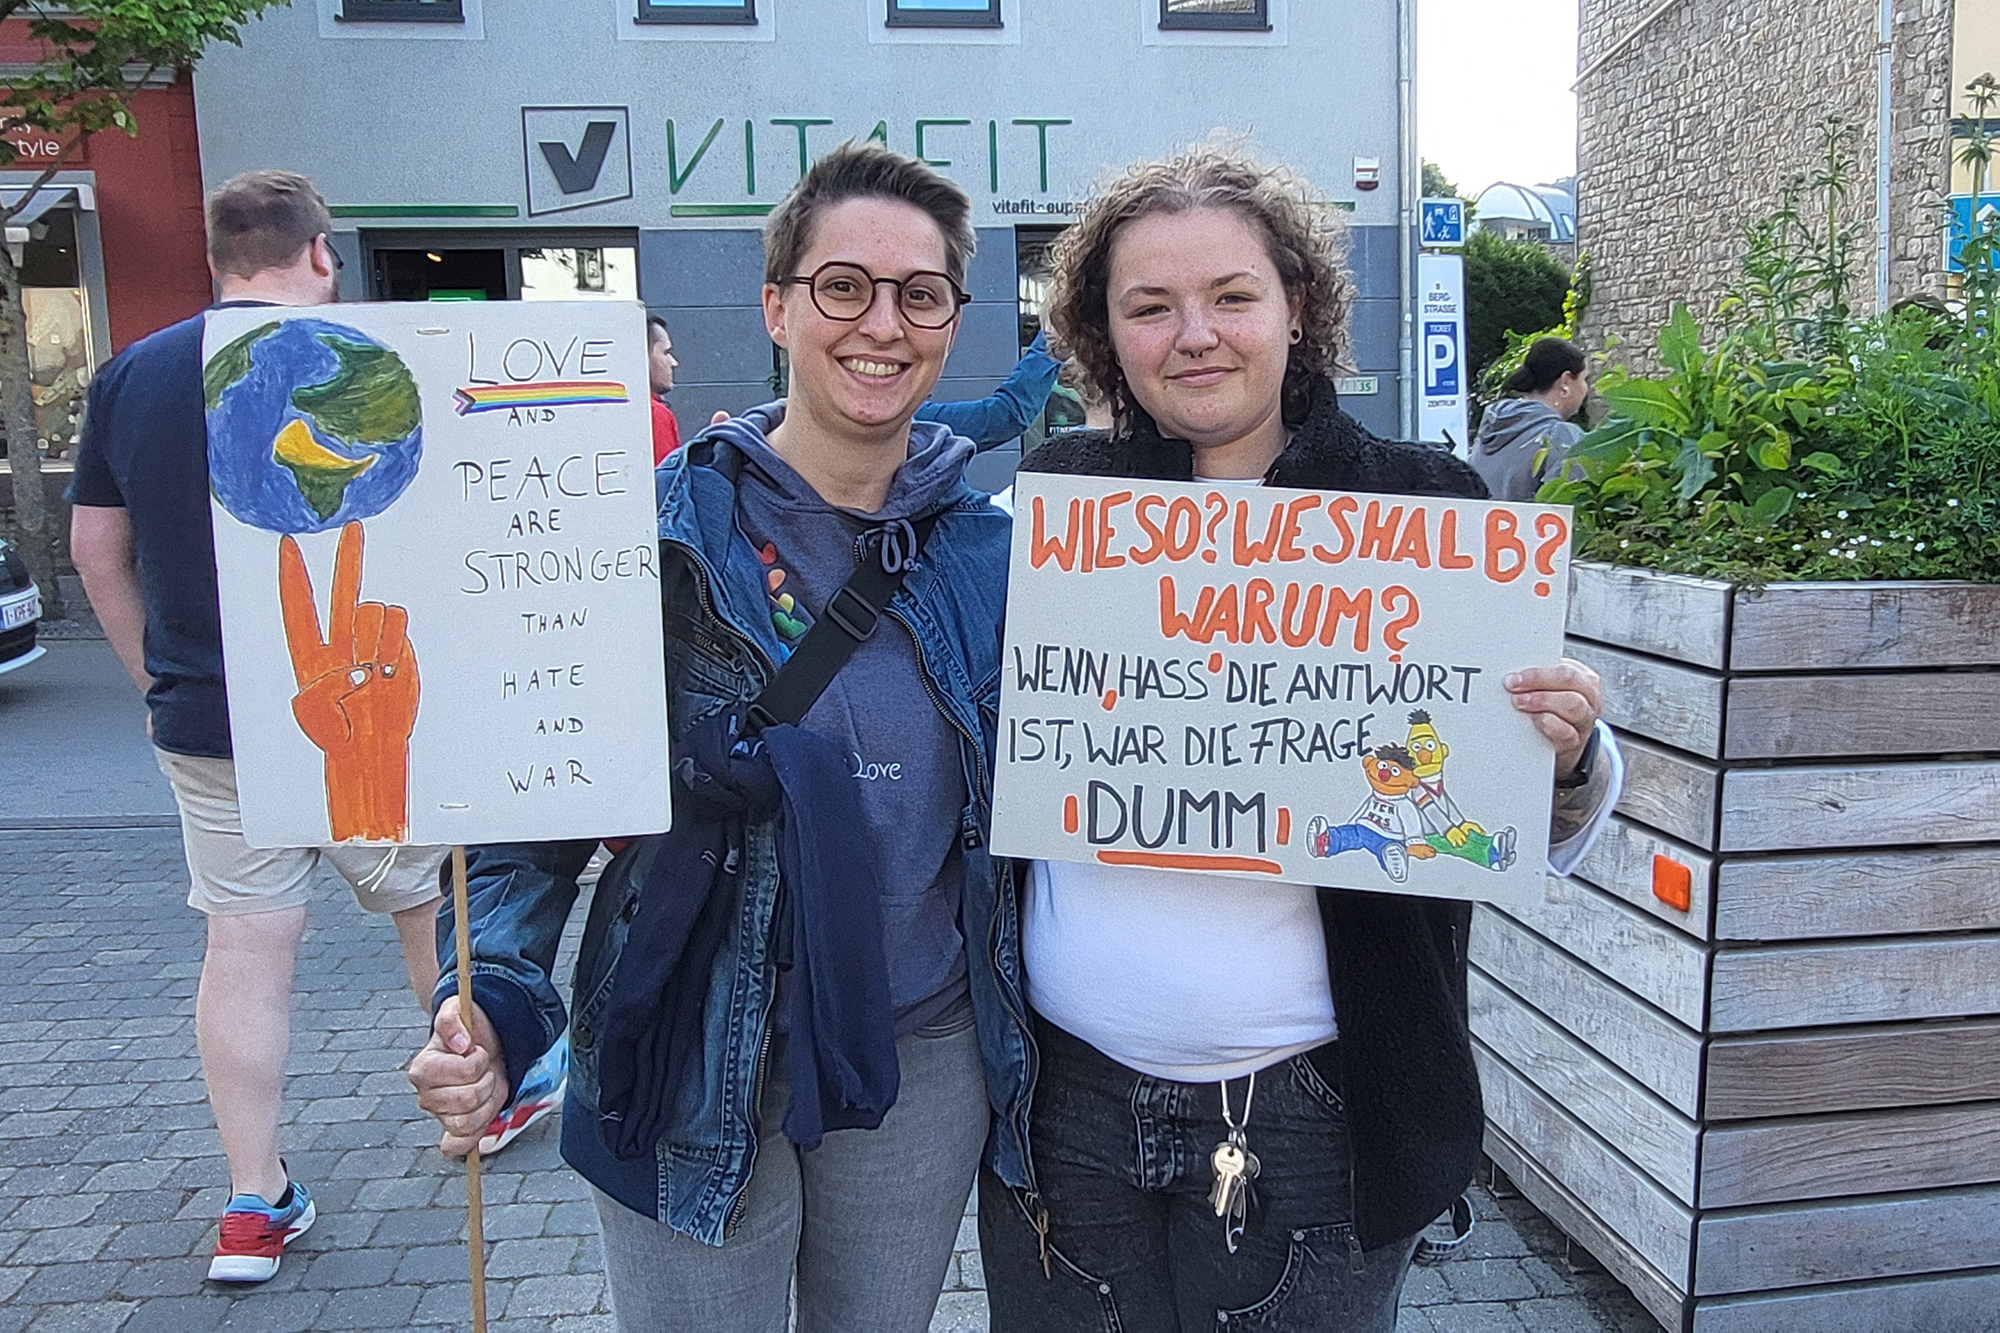 tyle
VITAFIT
vitafit-eupe
LOVE
AND
PEACE
ARE
STRONGER
THAN
HATE
AND
WAR
Love
WIESO? WESHALB?
WARUM?
WENN, HASS' DIE ANTWORT
IST, WAR DIE FRAGE
DUMM
BERG-
STRASSE
TICKET
P
ZENTRUM
35